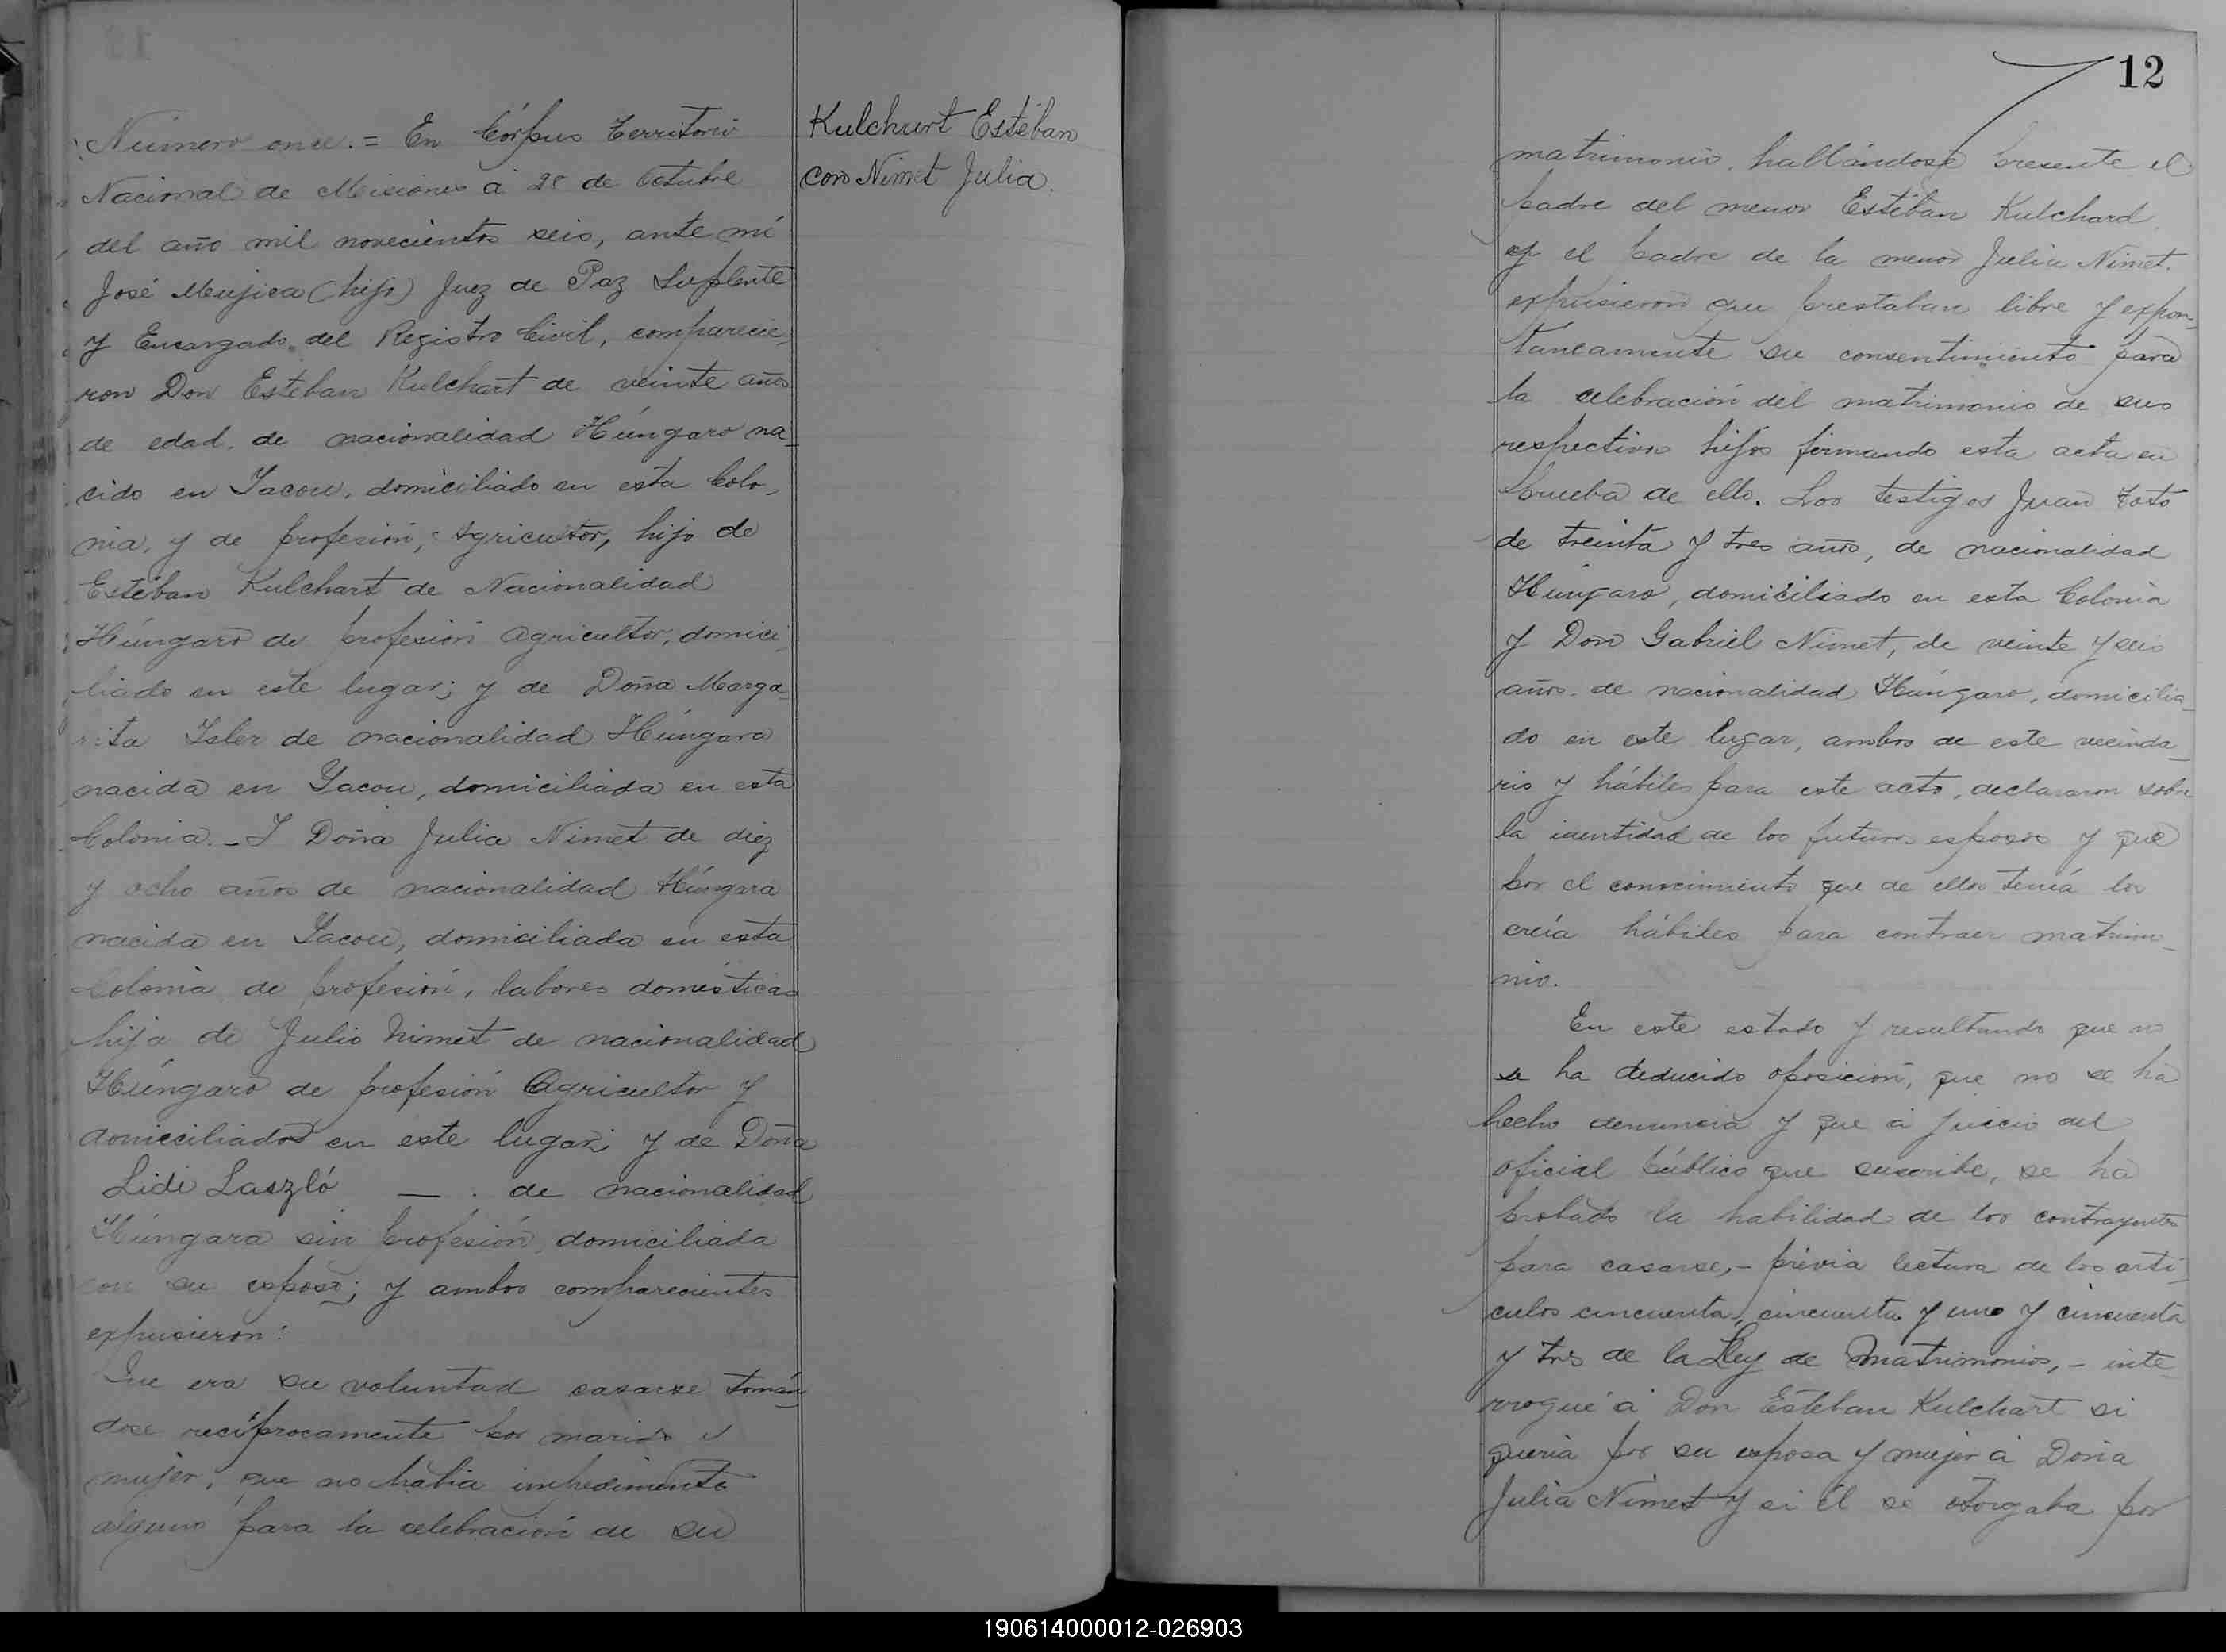 Número once. = En Córpus Territorio
Nacional de Misiones á 28 de Octubre
del año mil novecientos seis, ante mí
José Mujica (hijo) Juez de Paz Suplente
y Encargado del Registro Civil, comparecie_
ron Don Estéban Kulchart de veinte años
de edad. de nacionalidad Húngaro na_
cido en Yacou, domiciliado en esta Colo_
nia, y de profesión, Agricultor, hijo de
Estéban Kulchart de Nacionalidad
Húngaro de profesión Agricultor, domici_
liado en este lugar; y de Doña Marga_
rita Isler de nacionalidad Húngara
nacida en Yacou, domiciliada en esta
Colonia._ Y Doña Julia Nimet de diez
y ocho años de nacionalidad Húngara
nacida en Yacou, domiciliada en esta
Colonia de profesión, labores domésticas
hija de Julio Nimet de nacionalidad
Húngaro de profesión Agricultor y
domiciliados en este lugar; y de Doña
Lidi Laszló — . de nacionalidad
Húngara sin profesión, domiciliada
con su esposo; y ambos comparecientes
expusieron:
Que era su voluntad casarse tomán_
dose recíprocamente por marido y
mujer, que no había impedimento
alguno para la celebración de su
Kulchart Estéban
con Nimet Julia.
12
matrimonio. hallándose presente el
padre del menor Estéban Kulchard
y el padre de la menor Julia Nimet.
expusieron que prestaban libre y expon_
táneamente su consentimiento para
la celebración del matrimonio de sus
respectivos hijos firmando esta acta en
prueba de ello. Los testigos Juan Toto
de treinta y tres años, de nacionalidad
Húngaro, domiciliado en esta Colonia
y Don Gabriel Nimet, de veinte y seis
años. de nacionalidad Húngaro, domicilia_
do en este lugar, ambos de este vecinda_
rio y hábiles para este acto, declararon sobre
la identidad de los futuros esposos y que
por el conocimiento que de ellos tenía los
creía hábiles para contraer matrimo_
nio.
En este estado y resultando que no
se ha deducido oposición, que no se ha
hecho denuncia y que á juicio del
oficial público que suscribe, se ha
probado la habilidad de los contrayentes
para casarse,- prévia lectura de los artí_
culos cincuenta, cincuenta y uno y cincuenta
y tres de la Ley de Matrimonios,- inte_
rrogué á Don Estéban Kulchart si
quería por su esposa y mujer á Doña
Julia Nimet y si él se otorgaba por
190614000012-026903